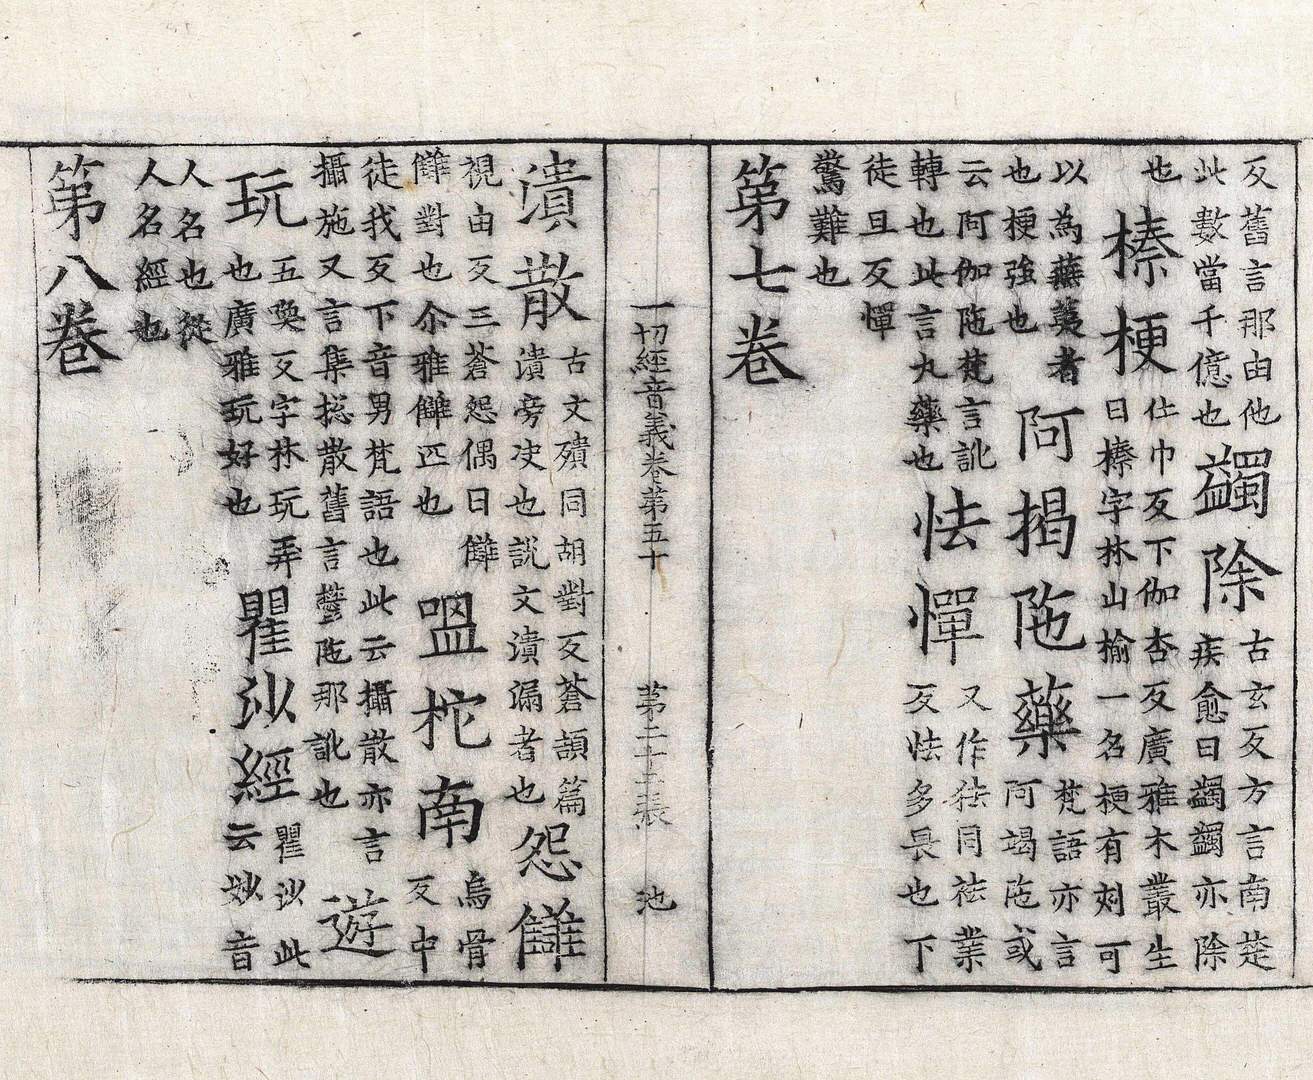 反舊言那由他
此數當千億也
蠲除
古玄反方言南楚
疾愈曰蠲蠲亦除
也
榛梗
仕巾反下伽杏反廣雅木叢生
曰榛字林山榆一名梗有刾可
以為蕪荑者
也梗強也
阿揭陁藥
梵語亦言
阿竭陁或
云阿伽陁梵言訛
轉也此言丸藥也
怯憚
又作㹤同祛業
反怯多畏也下
徒旦反憚
驚難也
第七卷
一切經音義卷第五十 第二十二張 池
潰散
古文殨同胡對反蒼頡篇
潰旁决也說文潰漏者也
怨讎
視由反三蒼怨偶曰讎
讎對也尒雅讎匹也
嗢柁南
烏骨
反中
徒我反下音男梵語也此云攝散亦言
攝施又言集揔散舊言欝陁那訛也
遊
玩
五喚反字林玩弄
也廣雅玩好也
瞿沙經
瞿沙此
云妙音
人名也從
人名經也
第八卷